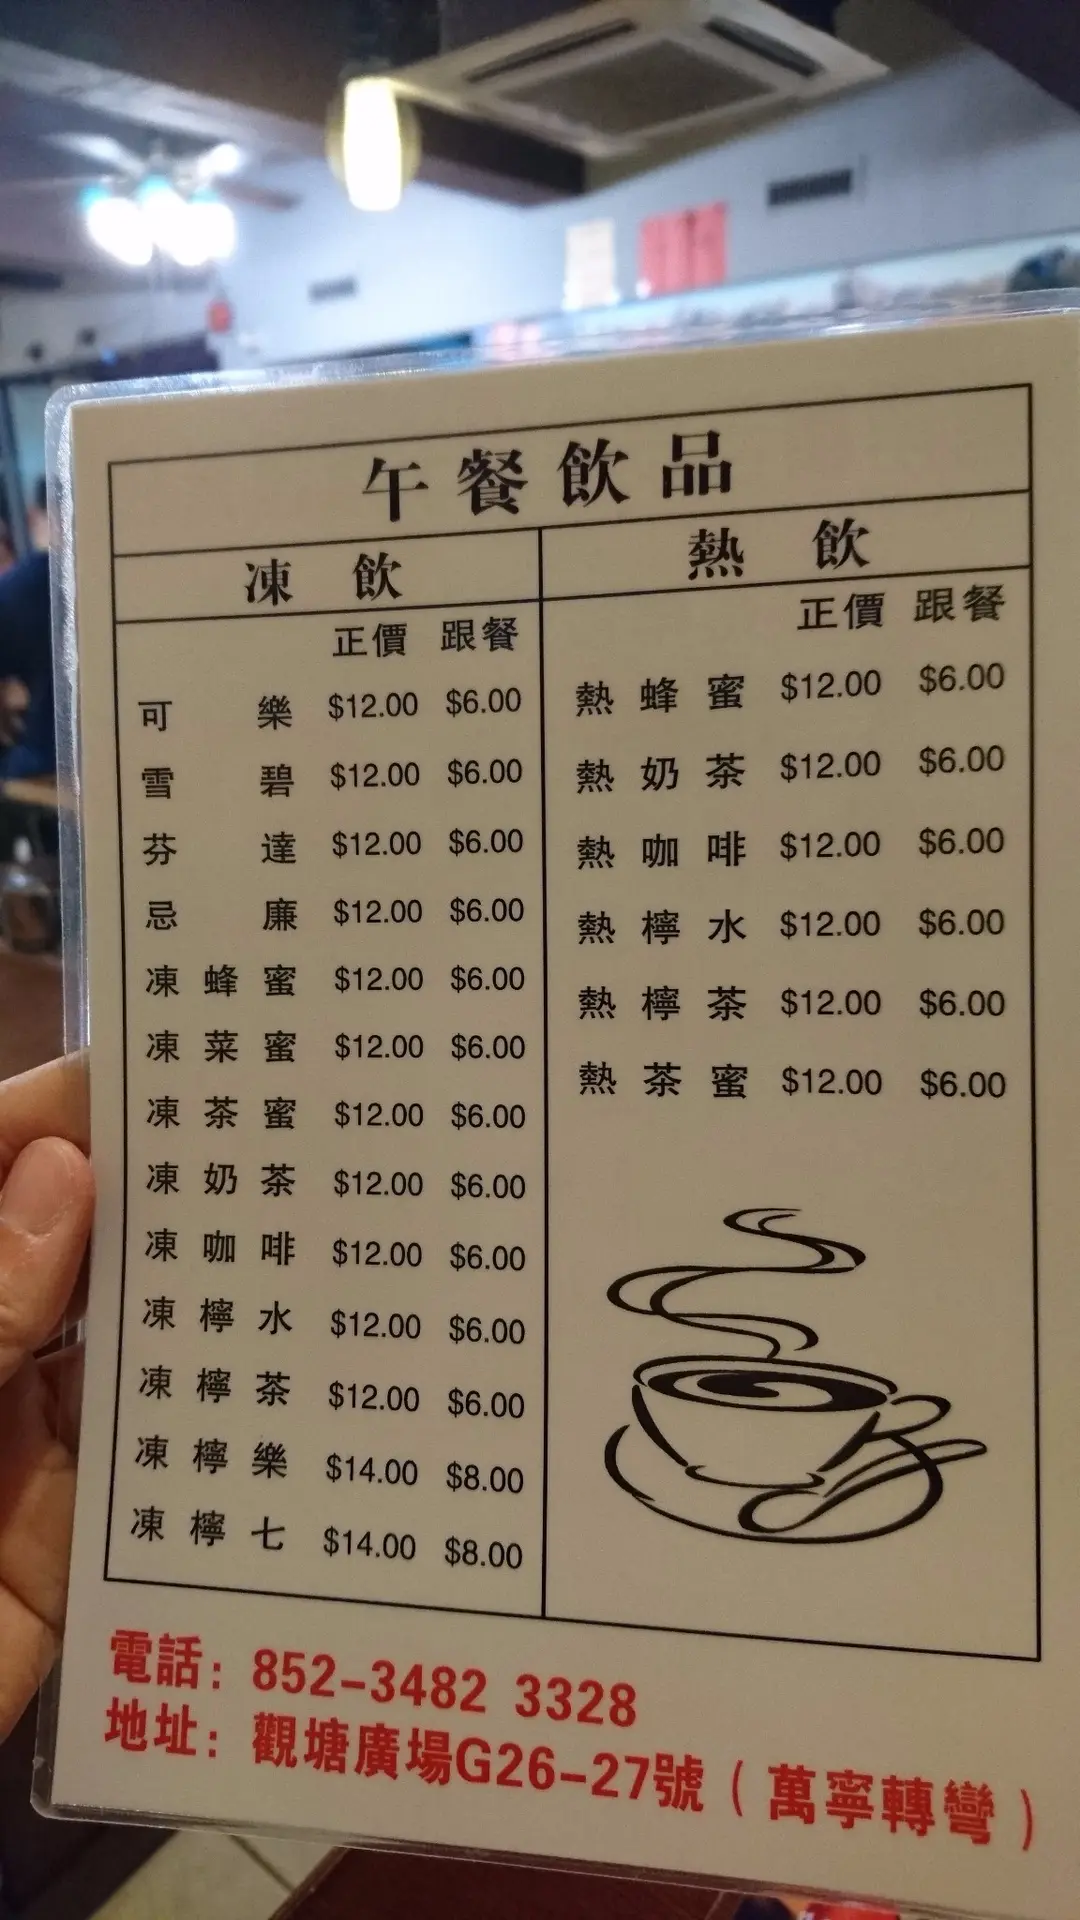 午餐飲品
凍 飲
正價 跟餐
可樂 $12.00 $6.00
雪碧 $12.00 $6.00
芬達 $12.00 $6.00
忌廉 $12.00 $6.00
凍蜂蜜 $12.00 $6.00
凍菜蜜 $12.00 $6.00
凍茶蜜 $12.00 $6.00
凍奶茶 $12.00 $6.00
凍咖啡 $12.00 $6.00
凍檸水 $12.00 $6.00
凍檸茶 $12.00 $6.00
凍檸樂 $14.00 $8.00
凍檸七 $14.00 $8.00
熱 飲
正價 跟餐
熱蜂蜜 $12.00 $6.00
熱奶茶 $12.00 $6.00
熱咖啡 $12.00 $6.00
熱檸水 $12.00 $6.00
熱檸茶 $12.00 $6.00
熱茶蜜 $12.00 $6.00
電話：852-3482 3328
地址：觀塘廣場G26-27號（萬寧轉彎）